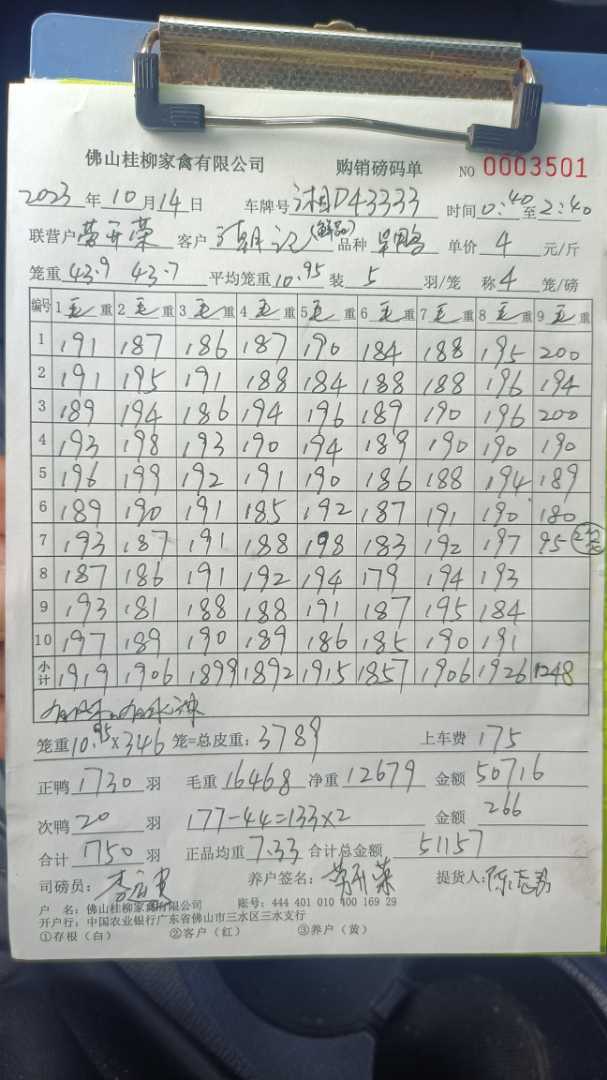 佛山桂柳家禽有限公司 购销磅码单 NO 0003501
2023年10月14日 车牌号 湘D43333 时间 0:40至2:40
联营户 荣 客户 记(鲜品) 品种 单价 4 元/斤
笼重 43.9 43.7 平均笼重 10.95 装 5 羽/笼 称 4 笼/磅
编号 1毛重 2毛重 3毛重 4毛重 5毛重 6毛重 7毛重 8毛重 9毛重
1 191 187 186 187 190 184 188 195 200
2 191 195 191 188 184 188 188 196 194
3 189 194 186 194 196 189 190 196 200
4 193 198 193 190 194 189 190 190 190
5 196 199 192 191 190 186 188 194 189
6 189 190 191 185 192 187 191 190 180
7 193 187 191 188 198 183 192 197 95
8 187 186 191 192 194 179 194 193
9 193 181 188 188 191 187 195 184
10 197 189 190 189 186 185 190 191
小计 1919 1906 1899 1892 1915 1857 1906 1926 1248
笼重 10.95 x 346 笼=总皮重: 3789 上车费 175
正鸭 1730 羽 毛重 16468 净重 12679 金额 50716
次鸭 20 羽 177-44=133x2 金额 266
合计 1750 羽 正品均重 7.33 合计总金额 51157
司磅员: 李 养户签名: 荣 提货人: 陈志
户 名: 佛山桂柳家禽有限公司 账号: 444 401 010 400 169 29
开户行: 中国农业银行广东省佛山市三水区三水支行
①存根(白) ②客户(红) ③养户(黄)